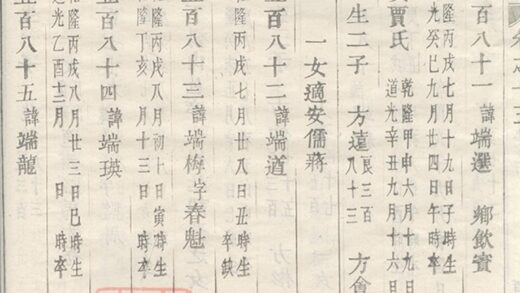 百八十一 諱端選 鄉飲賓
隆丙戌七月十九日子時生
光癸巳九月廿四日午時卒
賈氏 乾隆甲申六月十九日
道光辛丑九月十六日
生二子 方遠 長三百八十三 方
一女適安儒蔣
百八十二 諱端道
隆丙戌七月廿八日丑時生
卒缺
百八十三 諱端梅 字春魁
隆丙戌八月初十日寅時生
隆丁亥 月十三日 時卒
百八十四 諱端瑛
隆丙戌八月廿三日巳時生
道光乙酉十二月 日 時卒
百八十五 諱端龍